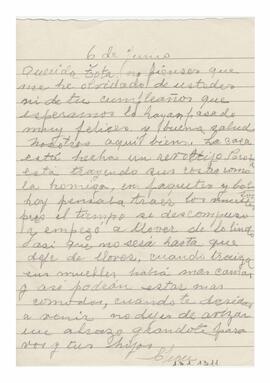 6 de junio
Querida Tota no pienses que
me he olvidado de ustedes
ni de tu cumpleaños que
esperamos lo hayan pasado
muy felices y buena salud
nosotros aquí bien. La casa
está hecha un revoltijo
está trayendo sus cosas como
la hormiga, en paquetes y
hoy pensaba traer los muebles
pero el tiempo se descompuso
y empezó a llover de lo lindo
así que no será hasta que
deje de llover, cuando traiga
sus muebles habrá mas camas
y así podrán estar mas
comodos, cuando te decidas
a venir no dejes de avisar
un abrazo grandote para
vos y tus hijos